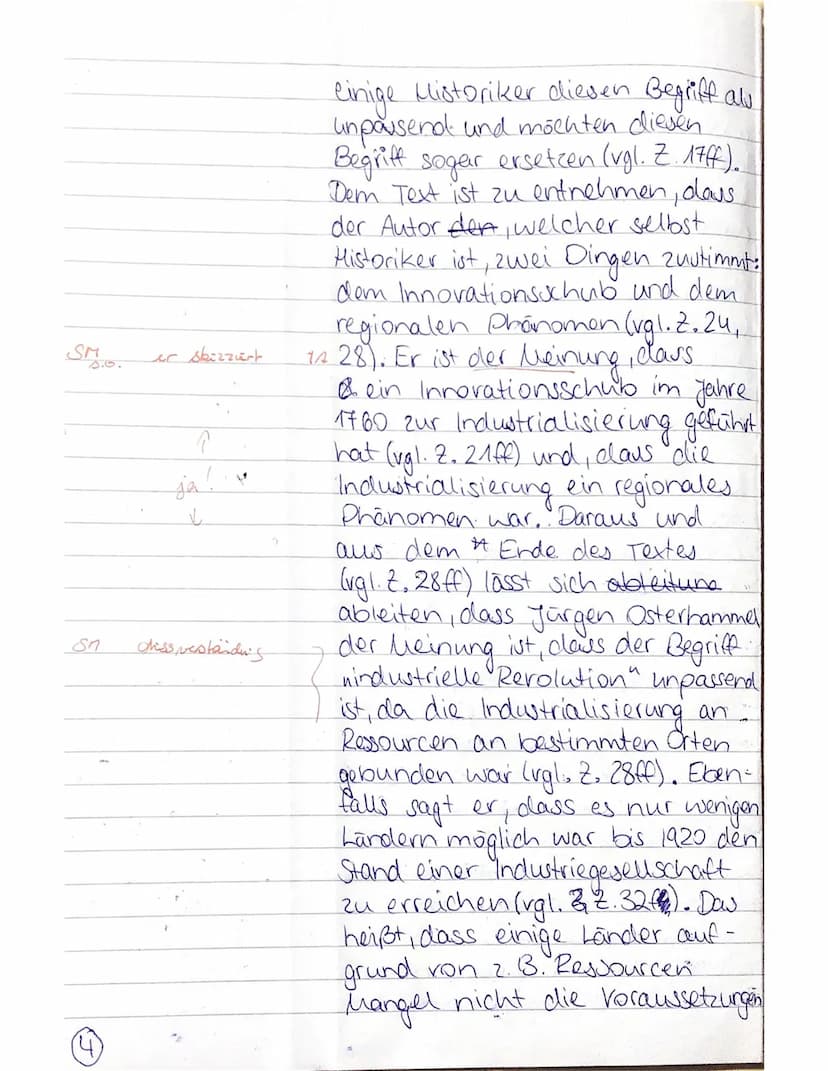 einige Historiker diesen Begriff als
unpassend und möchten diesen
Begriff sogar ersetzen (vgl. Z. 17ff).
Dem Text ist zu entnehmen, dass
der Autor den, welcher selbst
Historiker ist, zwei Dingen zustimmt:
dem Innovationsschub und dem
regionalen Phänomen (vgl. Z. 24,
SM s.o. er skizziert 28). Er ist der Meinung, dass
ein Innovationsschub im Jahre
1760 zur Industrialisierung geführt
hat (vgl. Z. 21ff) und, dass die
ja! Industrialisierung ein regionales
Phänomen war. Daraus und
aus dem Ende des Textes
(vgl. Z. 28ff) lässt sich ableitung
ableiten, dass Jürgen Osterhammel
SM der Meinung ist, dass der Begriff
"industrielle Revolution" unpassend
ist, da die Industrialisierung an
Ressourcen an bestimmten Orten
gebunden war (vgl. Z. 28ff). Eben-
falls sagt er, dass es nur wenigen
Ländern möglich war bis 1920 den
Stand einer Industriegesellschaft
zu erreichen (vgl. Z. 32ff). Das
heißt, dass einige Länder auf-
grund von z. B. Ressourcen
Mangel nicht die Voraussetzungen
4